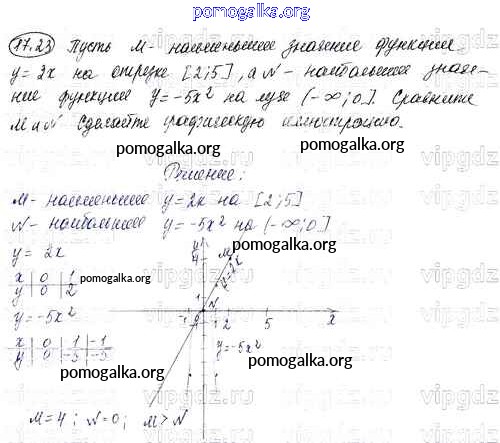 pomogalka.org
17.23 Пусть M - наименьшее значение функции
y = 2x на отрезке [2;5], а N - наибольшее значе-
ние функции y = -5x² на луче (-∞;0]. Сравните
M и N. Сделайте графическую иллюстрацию.
pomogalka.org pomogalka.org
Решение:
M - наименьшее y = 2x на [2;5]
N - наибольшее y = -5x² на (-∞;0]
y = 2x
x | 0 | 1 pomogalka.org
y | 0 | 2
y = -5x²
x | 0 | 1 | -1
y | 0 | -5 | -5
y
4
M
y=2x
1
N
0 1 2 5 x
-1
y=-5x²
pomogalka.org pomogalka.org
M=4; N=0; M>N
pomogalka.org
vipgdz